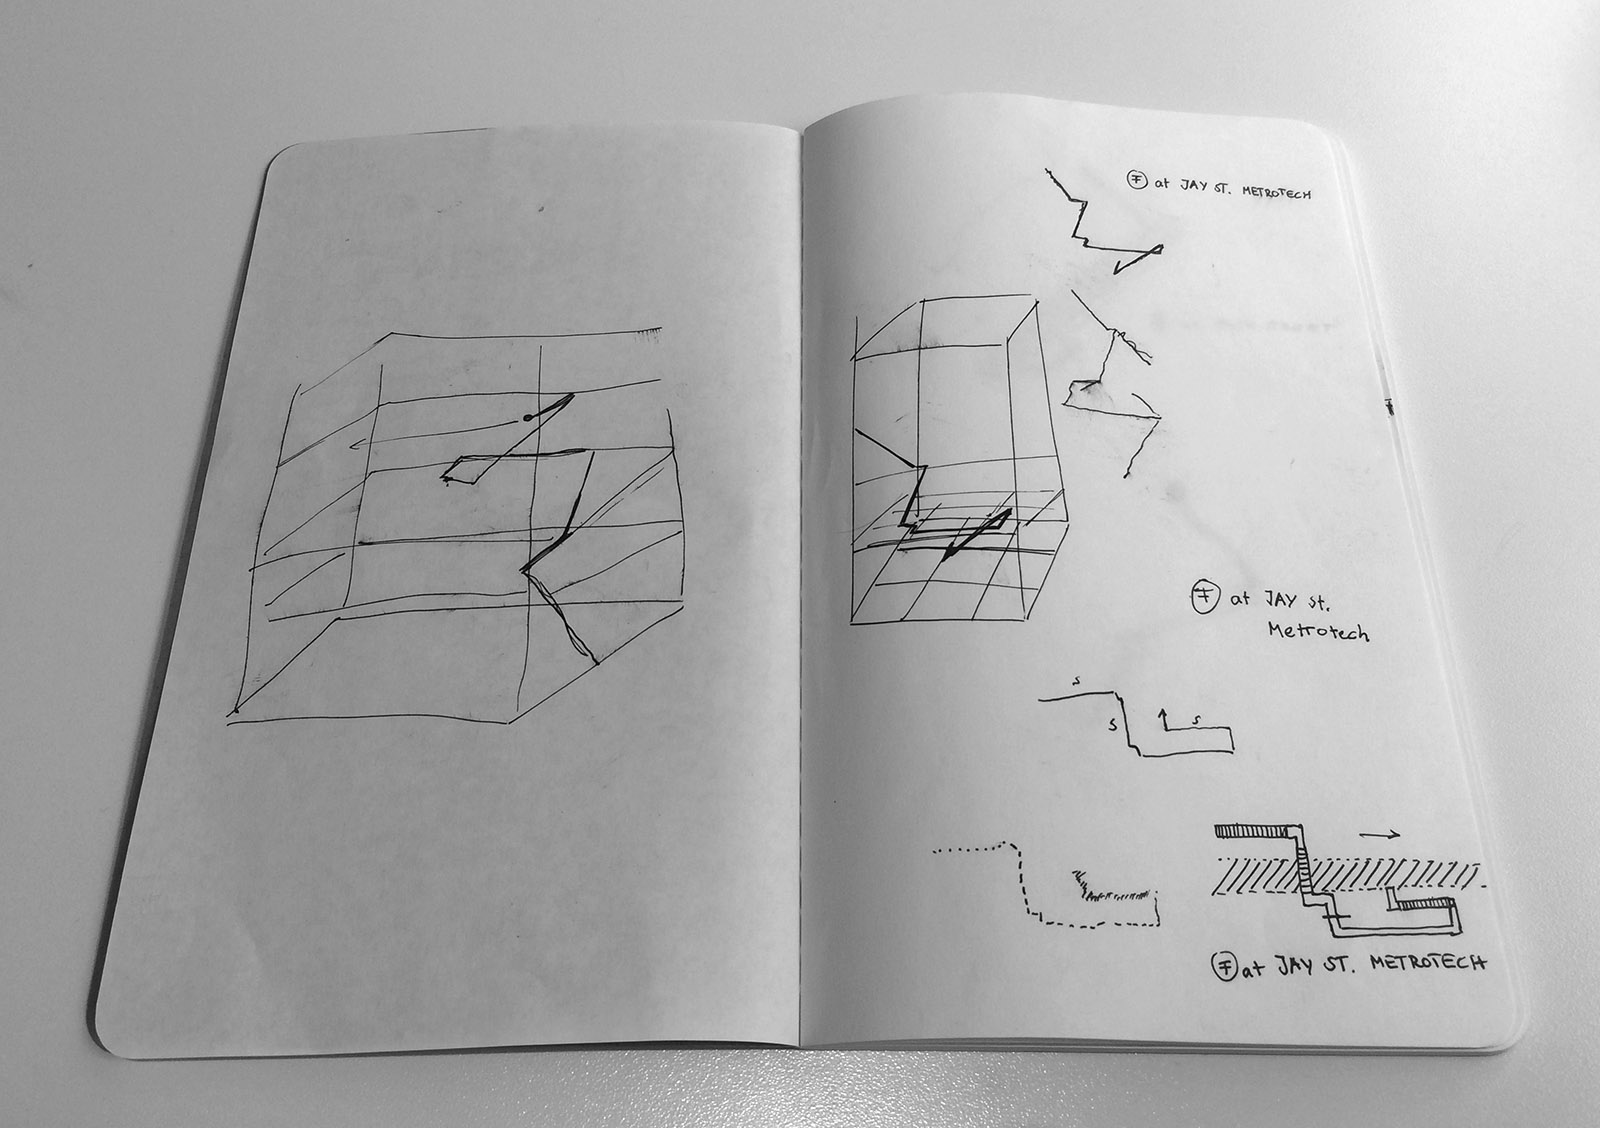 Ⓕ at JAY ST. METROTECH
Ⓕ at JAY St.
Metrotech
S
S
S
Ⓕ at JAY ST. METROTECH